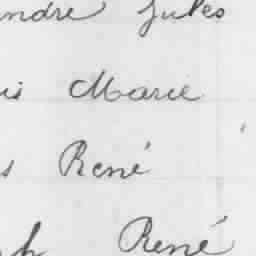 ndre Jules
is Marie
s René
h René